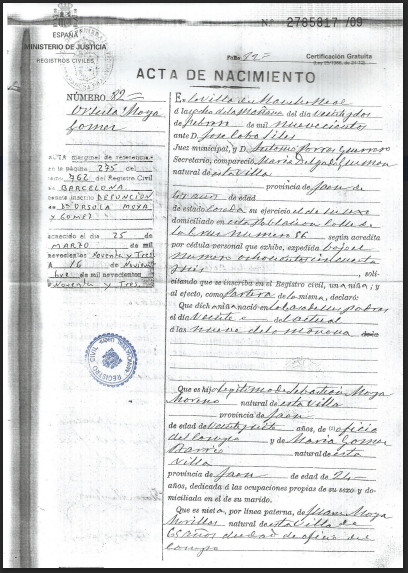 ESPAÑA
MINISTERIO DE JUSTICIA
REGISTROS CIVILES
N.º 2785817 /09
Folio 92
Certificación Gratuita
ACTA DE NACIMIENTO
NÚMERO 82
Ursula Moya
Gomer
ACTA marginal de referencia
en la página 275 del
tomo 462 del Registro Civil
de BARCELONA
consta inscrito DEFUNCIÓN
Dª URSOLA MOYA
y GOMEZ
acaecido el día 25 de
MARZO de mil
novecientos Noventa y Tres
A 16 de Noviem
bre de mil novecientos
Noventa y Tres
REGISTRO CIVIL
En la villa de
a las ocho de la Mañana del día veintydos
de febrero de mil novecientos
ante D. Jose
Juez municipal, y D. Antonio Guerrero
Secretario, compareció, Maria Delgado Guzman
natural de esta villa
provincia de Jaen de
años de edad
de estado casada su ejercicio el de su sexo
domiciliado en esta poblacion calle de
numero 86 según acredita
por cédula personal que exhibe, expedida bajo el
numero ochocientos cincuenta
y seis , soli-
citando que se inscriba en el Registro civil, una niña; y
al efecto, como partera de la misma, declaró:
Que dicha niña nació en la
el día veinte del actual
a las nueve de la mañana
Que es hija legitima de Sebastián Moya
Moreno natural de esta villa
provincia de Jaén
de edad de años, de oficio
del campo y de Maria Gomer
Barrio natural de esta
villa
provincia de Jaen de edad de 24
años, dedicada á las ocupaciones propias de su sexo y do-
miciliada en el de su marido.
Que es nieta, por línea paterna, de Juan Moya
Murillas natural de esta villa de
65 años de edad de oficio del
campo